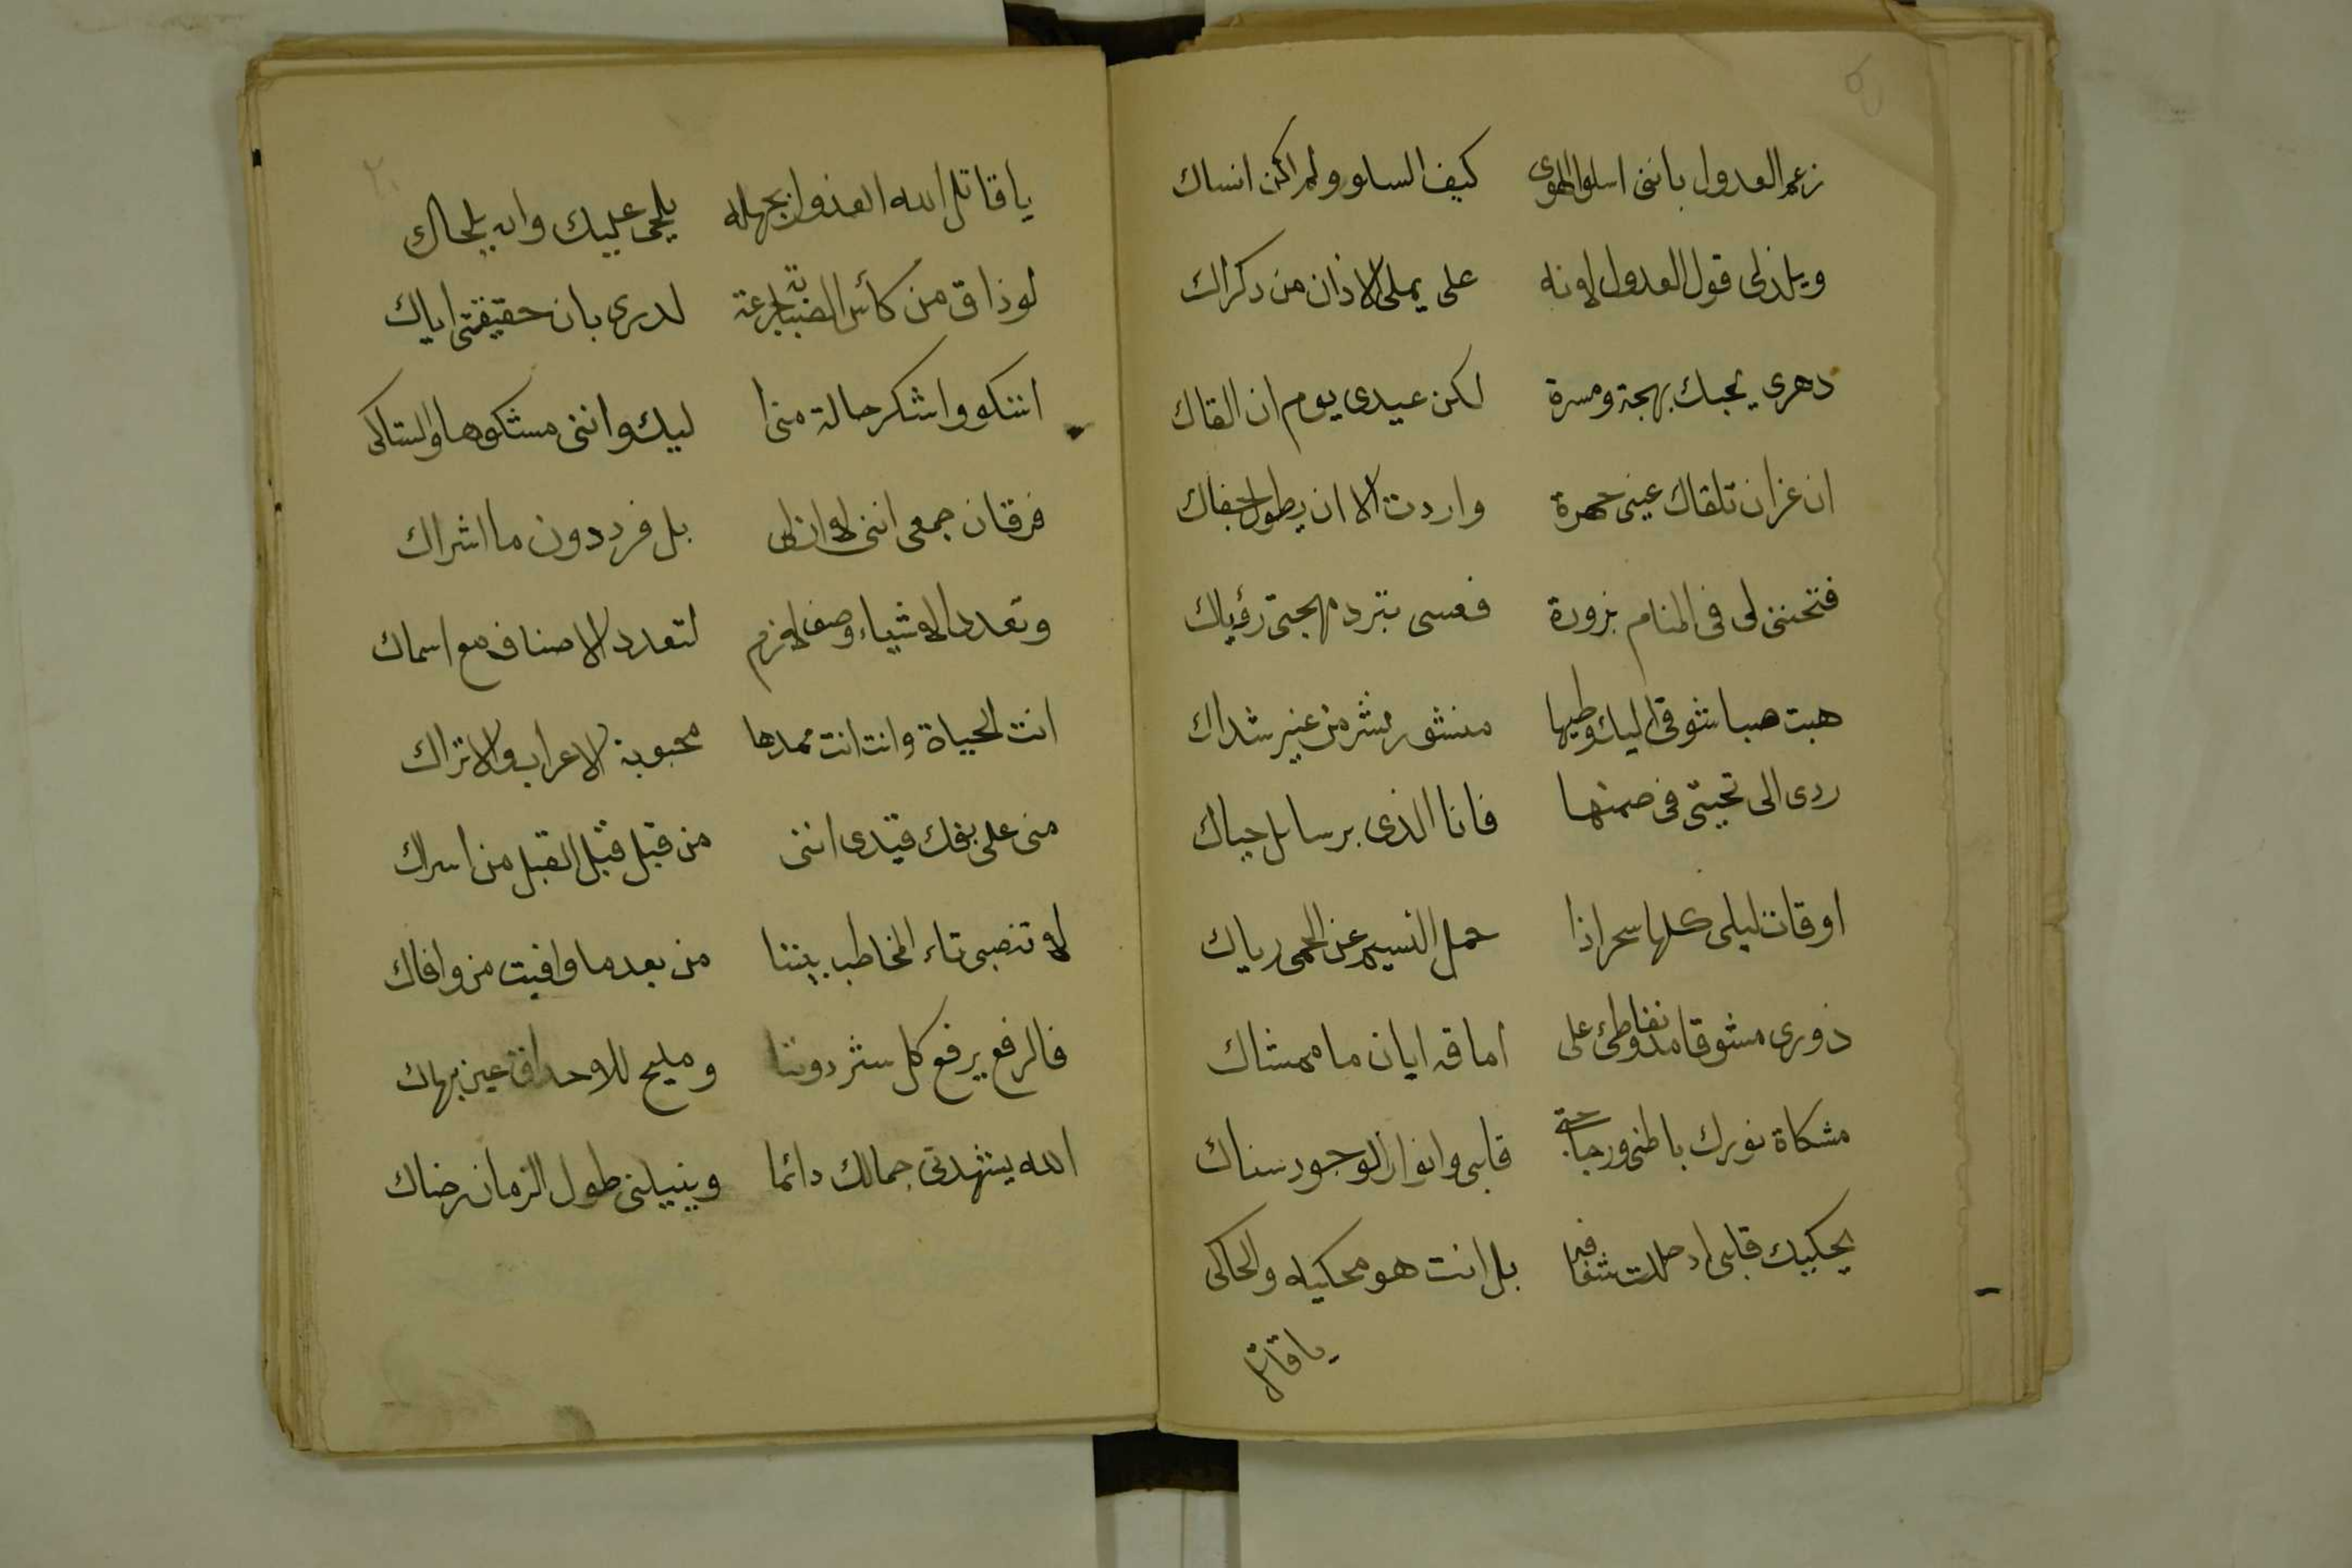 زعم العدول بانني اسلو الهوى كيف السلو ولم اكن انساك
ويلذ لى قول العدول لانه على يملى الاذان من ذكراك
دهرى بحبك بهجة ومسرة لكن عيدى يوم ان القاك
ان عزان تلقاك عينى حمرة واردت الا ان يطول جفاك
فتحننى لى فى المنام بزورة فعسى تبرد مهجتى رؤياك
هبت صبا شوقى اليك وطيها منشور نشر من عنبر شداك
ردى الى تحيتى فى ضمنها فانا الذى برسايل حياك
اوقات ليلى كلها سحر اذا حمل النسيم عن الحمى رياك
ذورى مشوقا على اماقه ايان ما ممشاك
مشكاة نورك باطنى وزجاجتى قلبى وانوار الوجود سناك
يحكيك قلبى اد بل انت هو محكيه والحاكى
ياقاتل
ياقاتل الله العذول بجهله يلحى عليك وانه يلحاك
لو ذاق من كأس الصبابة جرعة لدرى بان حقيقتى اياك
اشكو واشكر حالة منى ا ليك واننى مشكوها والشاكى
فرقان جمعى اننى لا ان لى بل فرد دون ما اشراك
وتعدد الاشياء وصف لازم لتعدد الاصناف مع اسماك
انت الحياة وانت انت ممدها محبوبة الاعراب والاتراك
منى على بفك قيدى اننى من قبل قبل القبل من اسراك
لا تنصبى تاء المخاطب بيننا من بعد ما وافيت من وافاك
فالرفع يرفع كل ستر دوننا ومليح للاحداق عين بهاك
الله يشهدنى جمالك دائما وينيلنى طول الزمان رضاك